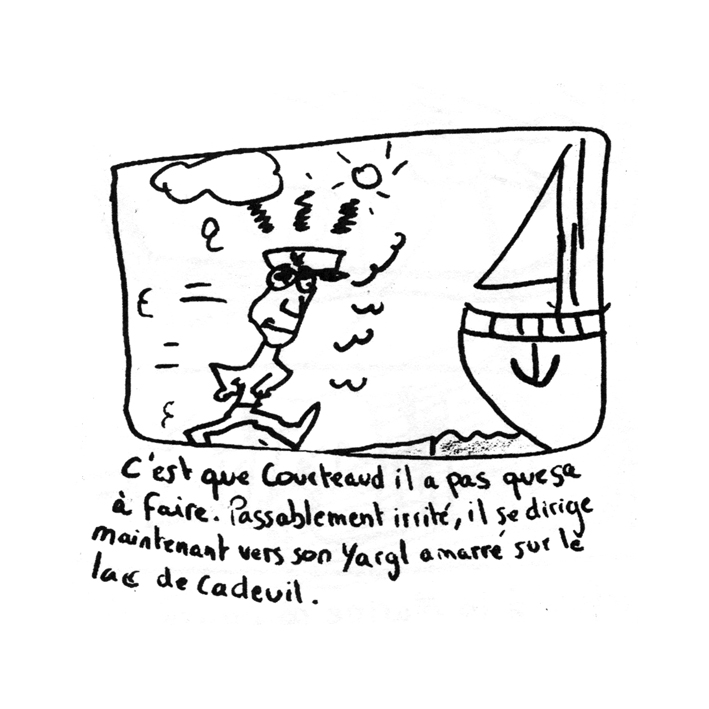 c'est que Courteaud il a pas que sa
à faire. Passablement irrité, il se dirige
maintenant vers son Yargl amarré sur le
lac de Cadeuil.